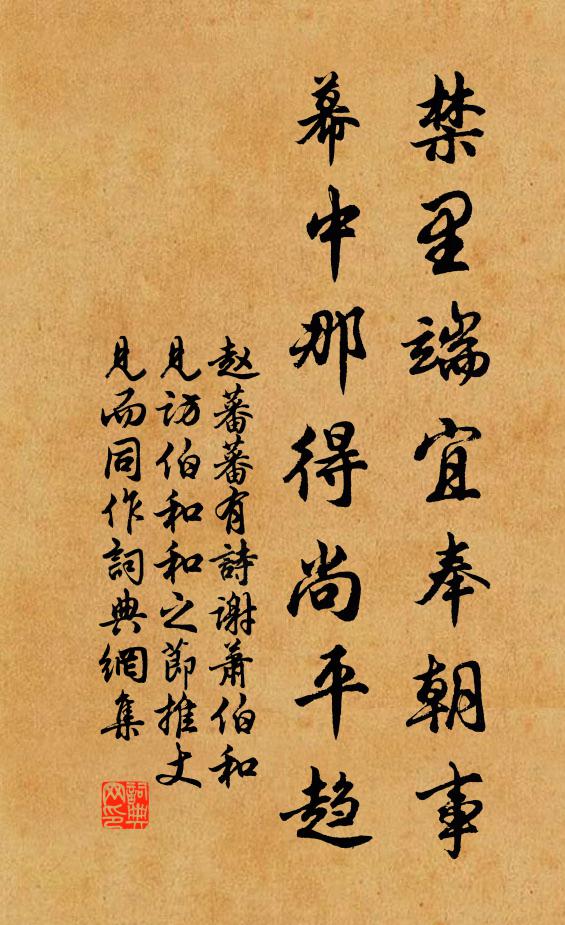 禁里端宜奉朝事
幕中那得尚平趋
赵蕃蕃有詩谢萧伯和
見訪伯和和之節推丈
見而同作詞典網集
詞典
网印